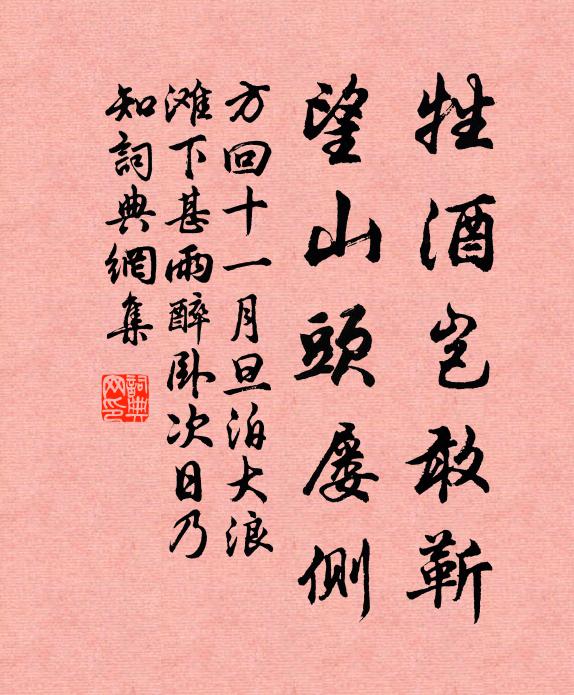 牲酒岂敢靳
望山頭屡側
方回十一月旦泊大浪
滩下甚雨醉卧次日乃
知詞典網集
詞典網印